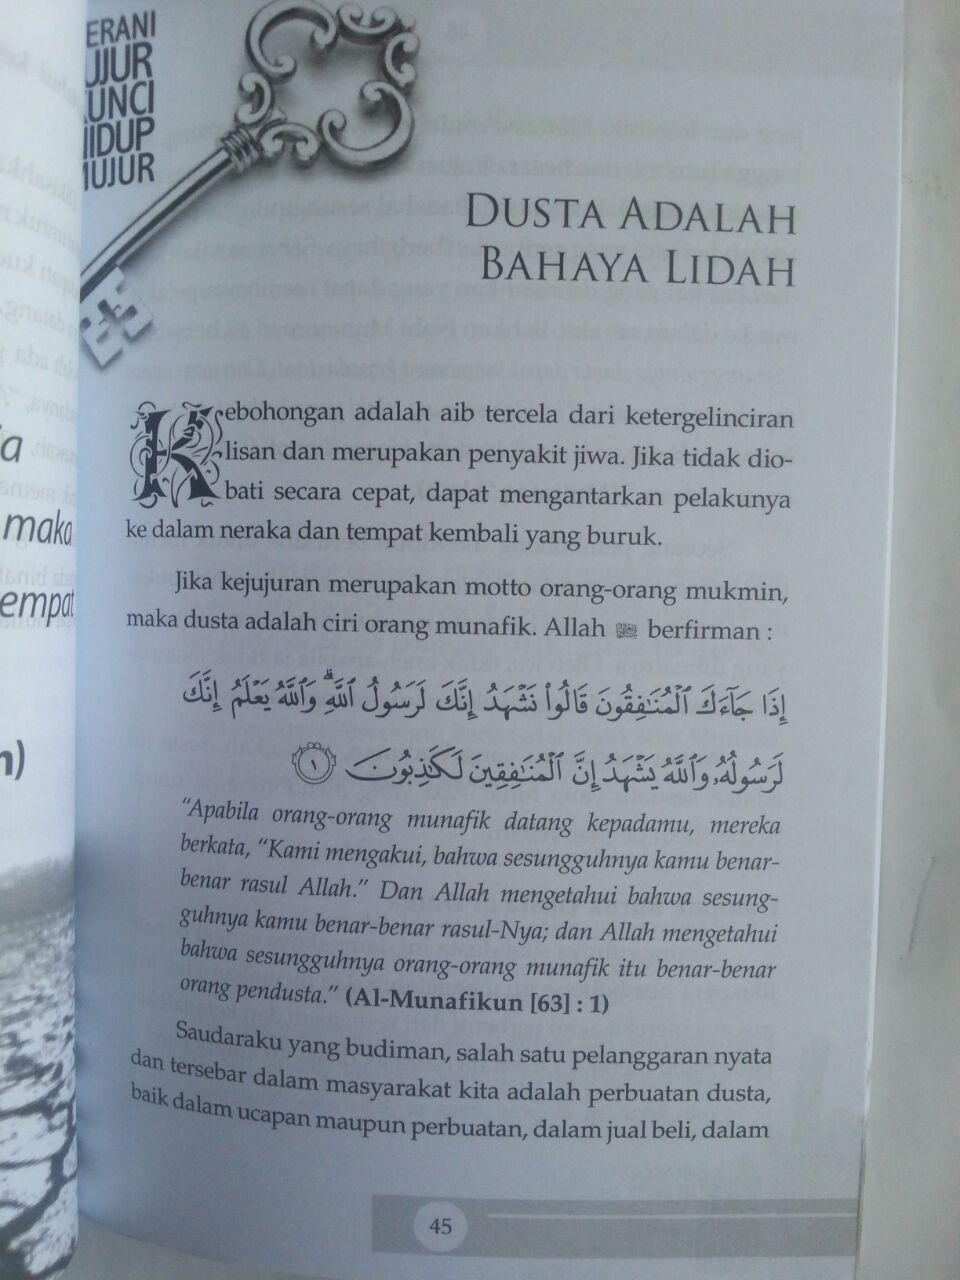 ERANI
UJUR
KUNCI
HIDUP
MUJUR
DUSTA ADALAH
BAHAYA LIDAH
Kebohongan adalah aib tercela dari ketergelinciran
lisan dan merupakan penyakit jiwa. Jika tidak dio-
bati secara cepat, dapat mengantarkan pelakunya
ke dalam neraka dan tempat kembali yang buruk.
Jika kejujuran merupakan motto orang-orang mukmin,
maka dusta adalah ciri orang munafik. Allah ﷻ berfirman :
إِذَا جَآءَكَ ٱلْمُنَٰفِقُونَ قَالُوا۟ نَشْهَدُ إِنَّكَ لَرَسُولُ ٱللَّهِ ۗ وَٱللَّهُ يَعْلَمُ إِنَّكَ
لَرَسُولُهُۥ وَٱللَّهُ يَشْهَدُ إِنَّ ٱلْمُنَٰفِقِينَ لَكَٰذِبُونَ ١
“Apabila orang-orang munafik datang kepadamu, mereka
berkata, “Kami mengakui, bahwa sesungguhnya kamu benar-
benar rasul Allah.” Dan Allah mengetahui bahwa sesung-
guhnya kamu benar-benar rasul-Nya; dan Allah mengetahui
bahwa sesungguhnya orang-orang munafik itu benar-benar
orang pendusta.” (Al-Munafikun [63] : 1)
Saudaraku yang budiman, salah satu pelanggaran nyata
dan tersebar dalam masyarakat kita adalah perbuatan dusta,
baik dalam ucapan maupun perbuatan, dalam jual beli, dalam
45
maka
empat